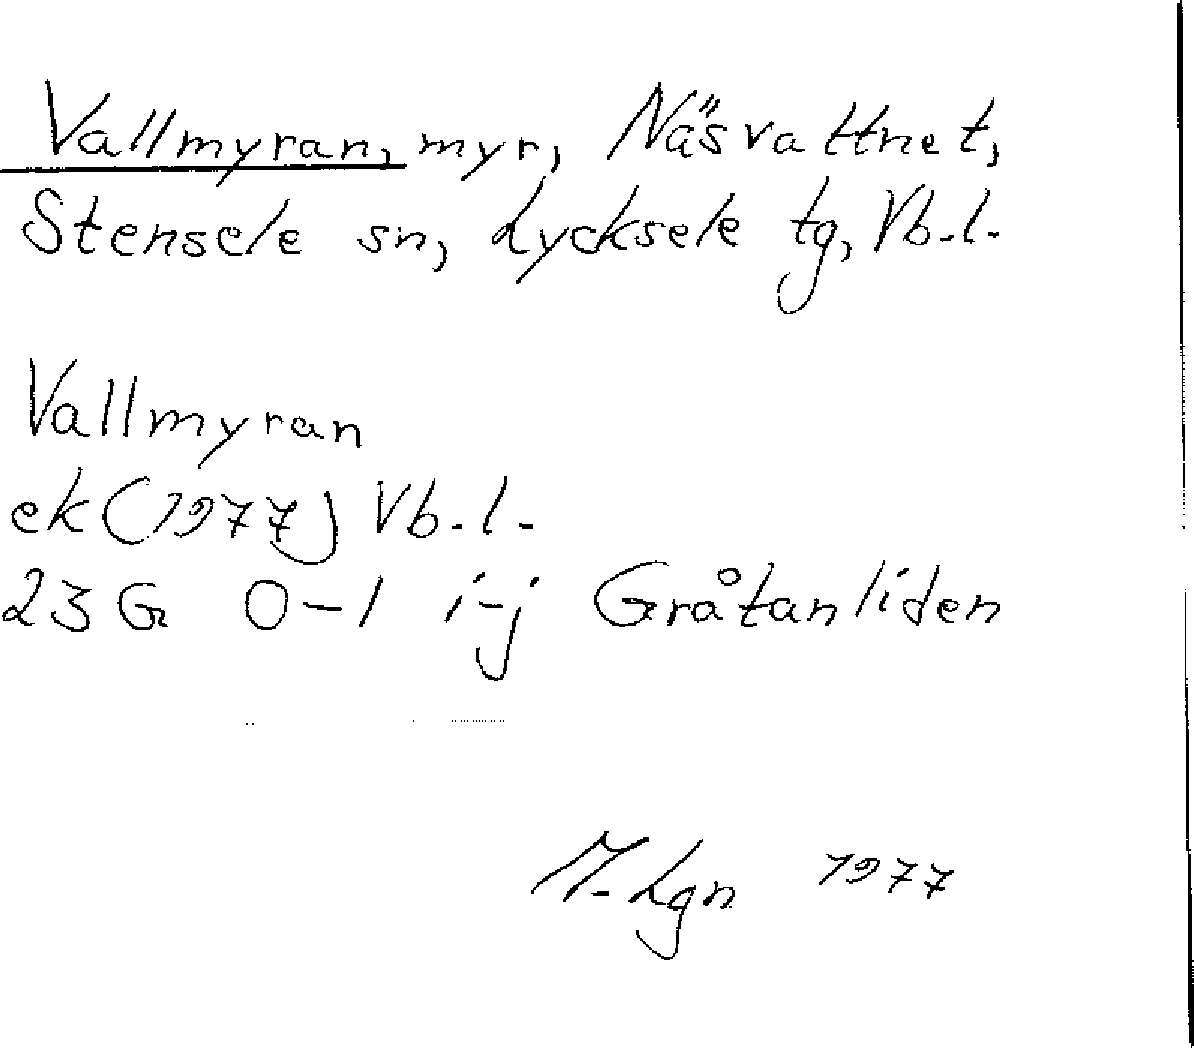 Vallmyran, myr, Näsvattnet,
Stensele sn, Lycksele tg, Vb.l.
Vallmyran
ek (1977) Vb.l.
23 G 0-1 i-j Gråtanliden
M. Lgn 1977